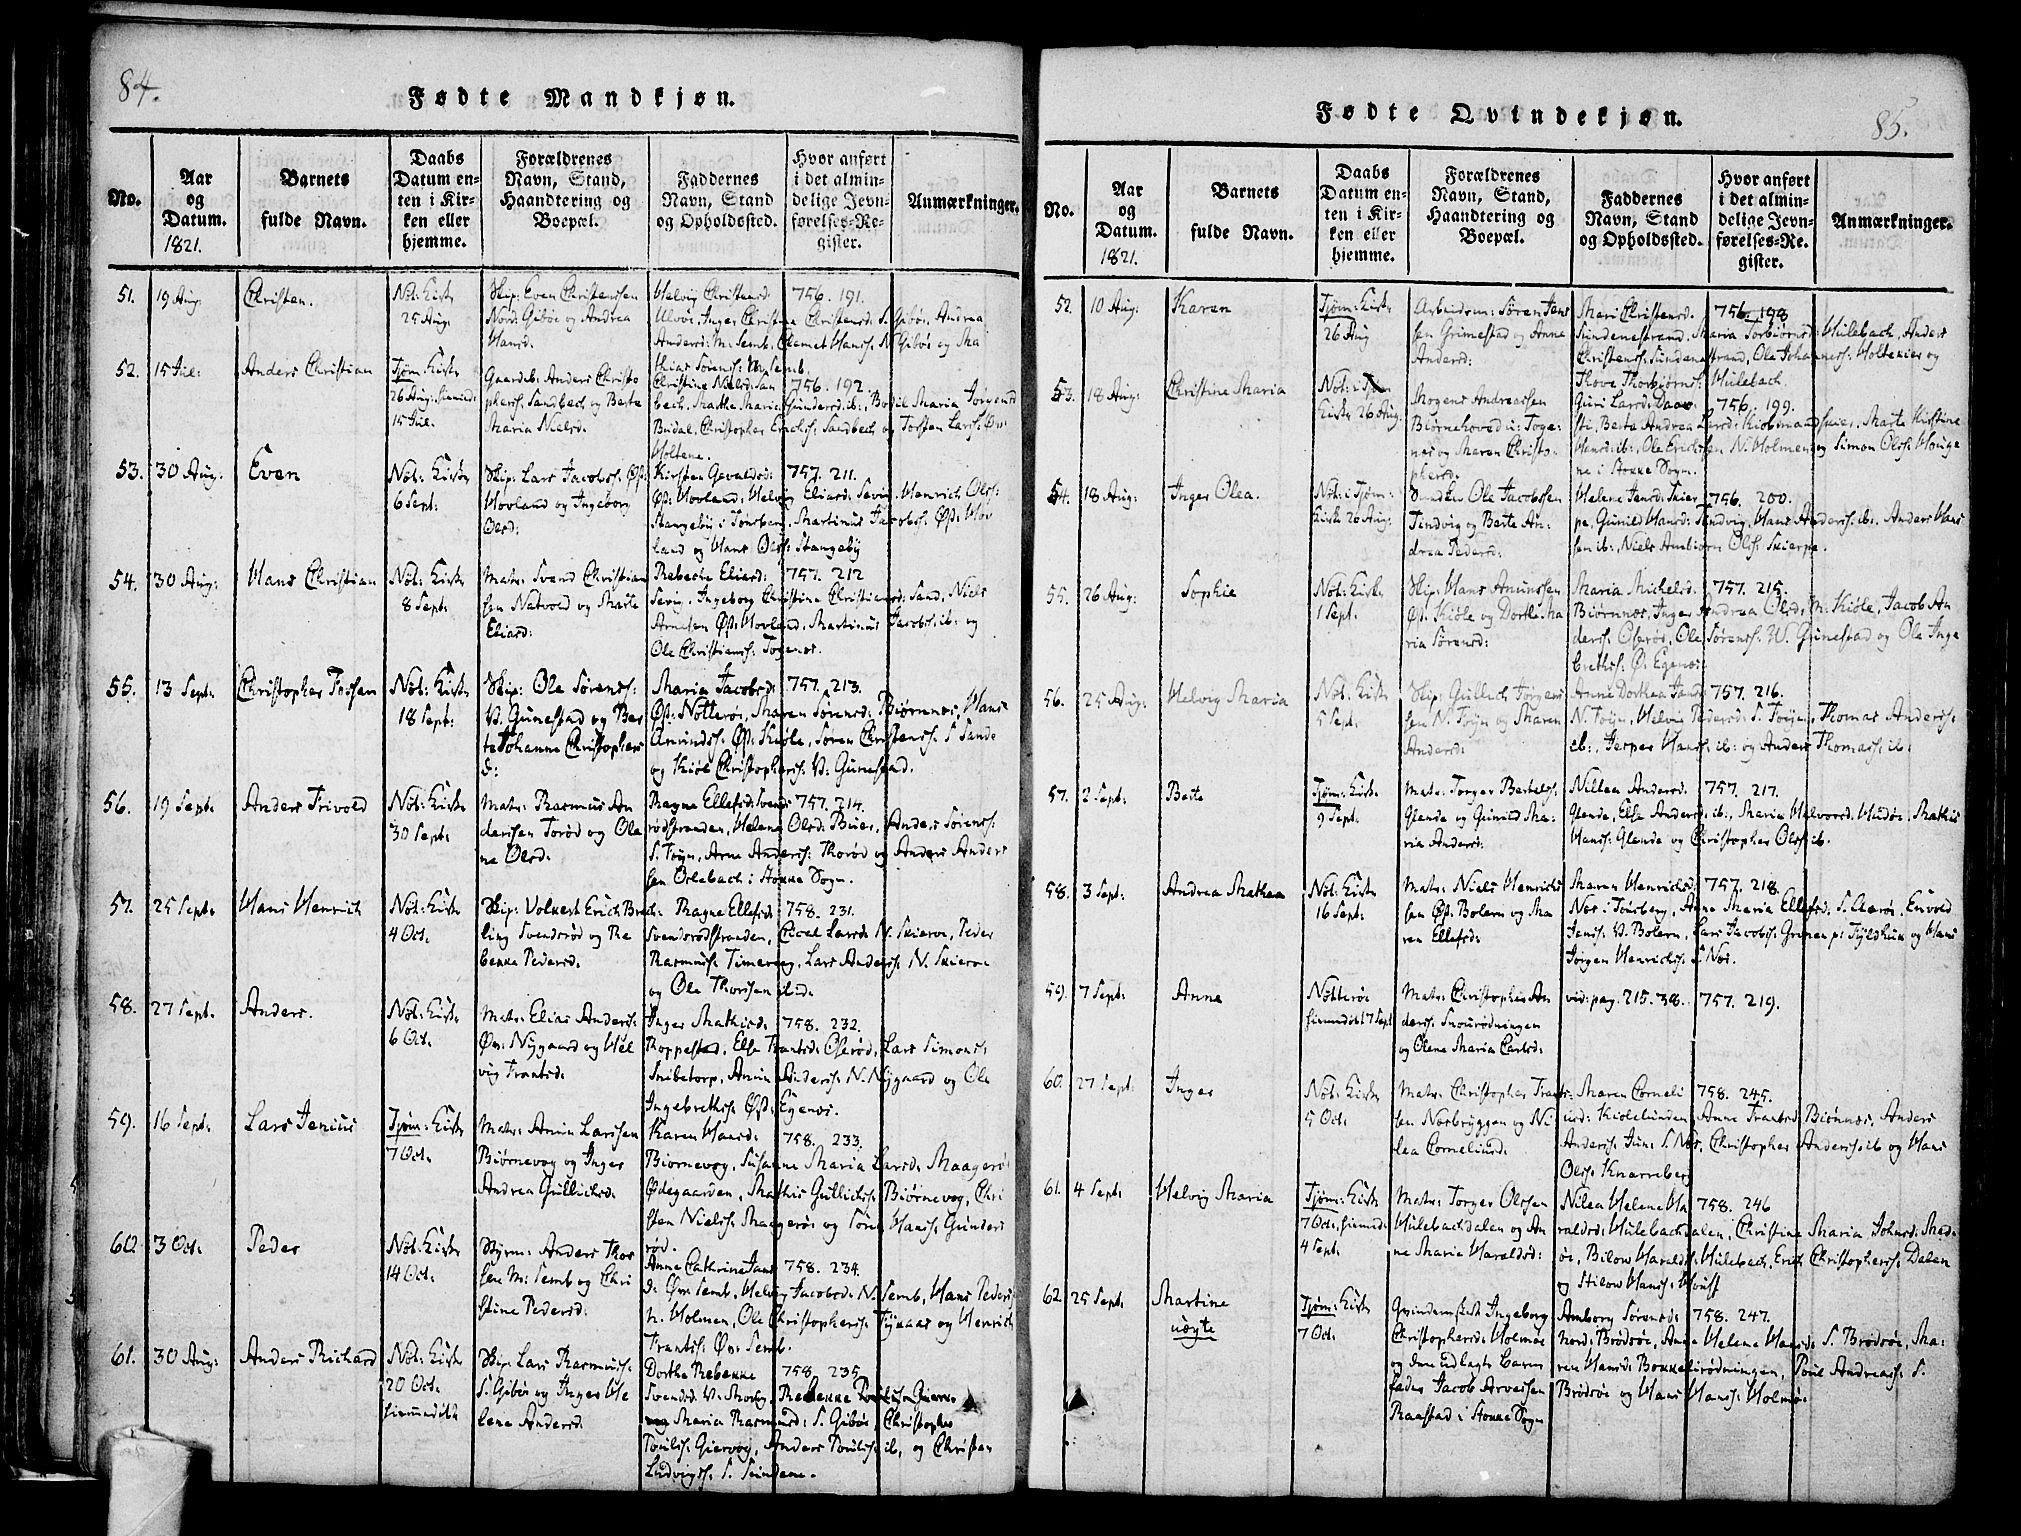 84.
Fødte Mandkjøn.
No.
Aar
og
Datum.
1821.
Barnets
fulde Navn.
Daabs
Datum en-
ten i Kir-
ken eller
hjemme.
Forældrenes
Navn, Stand,
Haandtering og
Boepæl.
Faddernes
Navn, Stand
og Opholdssted.
Hvor anført
i det almin-
delige Jevn-
førelses-Re-
gister.
Anmærkninger.
51.
19 Aug:
Christen.
Nøt: Kirke
25 Aug:
Skip: Even Christensen
Nord: Gibøe og Andrea
Hansd:
Helvig Christensd:
756. 191.
Ulvøe, Inger Christine Christensd: S. Gibøe, Andrea
Andersd: M: Semb, Clemet Hanss: N Gibøe og Ma
thias Sørens: M: Semb.
52.
15 Jul:
Anders Christian
Tjøm: Kirke
26 Aug: hiemed:
15 Jul:
Gaardb: Anders Christo
phers: Sandbech og Berte
Maria Nielsd:
Christine Nielsd: San
756. 192.
bech, Mathe Maria Gundersd: ib:, Bodil Maria Jørgensd
Budal, Christopher Erichs: Sandbech og Torsten Lars: Ør:
Holtene.
53.
30 Aug:
Even
Nøt: Kirke
6 Sept:
Skip: Lars Jacobs: Øst:
Hovland og Ingeborg
Olsd:
Kirsten Gevaldsd:
757. 211.
Øst: Hovland, Helvig Eliasd: Sevig, Henrich Ols:
Stangebÿ i Tønsberg, Martinus Jacobs: Øst: Hov
land og Hans Ols: Stangebÿ
54.
30 Aug:
Hans Christian
Nøt: Kirke
8 Sept:
Matr: Svend Christian
sen Natvold og Marte
Eliasd:
Rebecke Eliasd:
757. 212
Sevig, Ingeborg Christine Christiansd: Sand, Niels
Arnesen Øst: Hovland, Martinus Jacobs: ib: og
Ole Christians: Togenes.
55.
13 Sept:
Christopher Fossen
Nøt: Kirke
18 Sept:
Skip: Ole Sørens:
V. Gunestad og Ber
te Johanne Christophers
d:
Maria Jacobsd:
757. 213.
Øst: Nøtterøe, Maren Sørensd: Biørnenes, Hans
Amunds: Øst: Kiøle, Søren Christens: S Sande
og Kiøl Christophers: V: Gunestad.
56.
19 Sept:
Anders Trivold
Nøt: Kirke
30 Sept:
Matr: Rasmus An
dersen Torød og Ole
na Olsd:
Ragne Ellefsd: Svends
757. 214.
rødstranden, Helene Olsd: Buer, Anders Sørens:
S. Tøÿn, Arne Anders: Thorød og Anders Anders
sen Orlebach i Stokke Sogn.
57.
25 Sept:
Hans Henrich
Nøt: Kirke
4 Oct:
Skip: Volkert Erich Brech
ling Svendsrød og Re
bekka Pedersd:
Ragne Ellefsd
758. 231.
Svendsrødstranden, Sivel Larsd: N. Skierve, Peder
Rasmus: Timeraag, Lars Anders: N. Skierve
og Ole Thorsen ibid:
58.
27 Sept:
Anders.
Nøt: Kirke
6 Oct:
Matr: Elias Anders:
Ør: Nÿgaard og Hel
vig Frantsd:
Inger Mathisd:
758. 232.
Roppestad, Else Frantsd: Oserød, Lars Simons:
Snibetorp, Amun Anders: N. Nÿgaard og Ole
Ingebreths: Øst: Egenes.
59.
16 Sept:
Lars Jenius
Tjøm: Kirke
7 Oct:
Matr: Amun Larssen
Biørnevog og Inger
Andrea Gullichsd:
Karen Hansd:
758. 233.
Biørnevog, Susanne Maria Larsd: Maagerø
Ødegaarden, Mathis Gullichs: Biørnevog, Chri
sten Niels: Maagerøe og Tore Hans: Grinders
rød.
60
3 Oct:
Peder
Nøt: Kirke
14 Oct:
Styrm: Anders Thor
sen M: Semb og Chri
stine Pedersd:
Anne Cathrine Jans
758. 234.
d: Ør: Semb, Helvig Jacobsd: N. Semb, Hans Peders:
N. Holmen, Ole Christophers: Fÿnaas og Henrich
Frants: Ør: Semb.
61.
30 Aug:
Anders Richard
Nøt: Kirke
20 Oct:
hiemmedøbt
Skip: Lars Rasmus:
S. Gibøe og Inger He
lene Andersd:
Dorthe Rebekke
758. 235
Svendsd: V: Skovg, Rebekke Poulsd: Gierv
vog Maria Rasmusd: S. Gibøe, Christopher
Pouls: Giervog, Anders Pouls: ib, og Christen
Ludvigs: S. Skindene.
85.
Fødte Qvindekjøn.
No.
Aar
og
Datum.
1821.
Barnets
fulde Navn.
Daabs
Datum en-
ten i Kir-
ken eller
hjemme.
Forældrenes
Navn, Stand,
Haandtering og
Boepæl.
Faddernes
Navn, Stand
og Opholdssted.
Hvor anført
i det almin-
delige Jevn-
førelses-Re-
gister.
Anmærkninger.
52.
10 Aug:
Karen
Tjøm: Kirke
26 Aug
Arbeidsm: Søren Jens
sen Grimestad og Anne
Andersd:
Mari Christensd.
756. 198
Sundenestrand, Maria Torbiørnsd: Hulebach, Anders
Christens: Sundenestrand, Ole Johannes: Holtekier og
Thove Thorbiørns: Hulebach.
53.
18 Aug:
Christine Maria
Nøt: i Tjøm
Kirke 26 Aug
Mogens Andreassen
Biørnehoved i Toge
nes og Maren Christo
phersd:
Guri Larsd: Daav
756. 199.
sti, Berta Andrea Larsd: Kiøbmandskier, Marte Kirstine
Hansd: ib:, Ole Erichsen N. Holmen og Simon Ols: Hauge
ne i Stokke Sogn.
54.
18 Aug:
Inger Olea.
Nøt: i Tjøm:
Kirke 26 Aug:
Snedker Ole Jacobssen
Tindvig og Berte An:
drea Pedersd:
Helene Jensd: Skier
756. 200.
pe, Gunild Hansd: Tindvig, Hans Anders: ib:, Anders Hans
sen ib:, Niels Ambiørn Ols: Skierpe.
55.
26 Aug:
Sophie
Nøt: Kirke
1 Sept:
Skip: Hans Amunssen
Øst: Kiøle og Dorthe Ma
ria Sørensd:
Maria Michelsd:
757. 215.
Biørnnes, Inger Andrea Olsd: M: Kiøle, Jacob An
ders: Oserøe, Ole Sørens: V. Gunestad og Ole Inge
breths: Ø: Egenes.
56.
25 Aug:
Helvig Maria
Nøt: Kirke
5 Sept:
Skip: Gullich Jørgens
sen N. Tøÿn og Maren
Andersd:
Anne Dorthea Jansd
757. 216.
N. Tøÿn, Helvig Pedersd: S. Tøÿn, Thomas Anders:
ib:, Jesper Hans: ib: og Anders Thomas: ib:
57.
2 Sept:
Berte
Tjøm: Kirke
9 Sept:
Matr: Torger Berthels:
Glende og Gunnild Ma:
ria Andersd:
Nillea Andersd:
757. 217.
Glende, Else Andersd: ib:, Maria Halvorsd: Hudøe, Mathias
Hans: Glende og Christopher Ols: ib.
58.
3 Sept:
Andrea Mathea
Nøt: Kirke
16 Sept:
Matr: Niels Henrichs
sen Øst: Bolern og Ma
ren Ellefsd:
Maren Henrichsd:
757. 218.
Nes i Tønsberg, Anne Maria Ellefsd: S. Aarøe, Envold
Jans: V. Bolern, Lars Jacobs: Grenen p: Fÿldhuk og Hans
Jørgen Henrichs: S. Nes.
59.
7 Sept:
Anne
Nøtterøe
hiemmedøbt 7 Sept
Matr: Christopher An
ders: Snourødningen
og Olene Maria Carlsd:
vid: pag: 215. 38.
757. 219.
60.
27 Sept:
Inger
Nøt: Kirke
5 Oct:
Matr: Christopher Frants:
sen Nesbryggen og Ni
lea Corneliusd:
Maren Corneli
758. 245.
usd: Kiolelunden, Anne Frantsd: Biønnes, Anders
Anders: Jun: S. Nes, Christopher Anders: ib og Hans
Ols: Knarreberg
61.
4 Sept:
Helvig Maria
Tjøm: Kirke
7 Oct: hiemmed:
4 Sept:
Matr: Torger Olssen
Hulebachdalen og An
ne Maria Haraldsd:
Nilea Helene Ha
758. 246
raldsd: Hulebachdalen, Christine Maria Johnsd: Med:
øe, Bilow Haralds: Hulebach, Erich Christophers: Dalen
og Stilow Hans: Houst
62.
25 Sept:
Martine
uægte
Tjøm: Kirke
7 Oct:
Qvindemsk: Ingeborg
Christophersd: Holmøe
og den udlagte Barne
fader Jacob Arvessen
Raastad i Stokke Sogn
Amborg Sørensd:
758. 247.
nord: Brødsøe, Anne Helene Hansd: S. Brødsøe, Ma:
ren Hansd: Bokkelirødningen, Poul Andreas: S.
Brødsøe og Hans Hans: Holmøe.